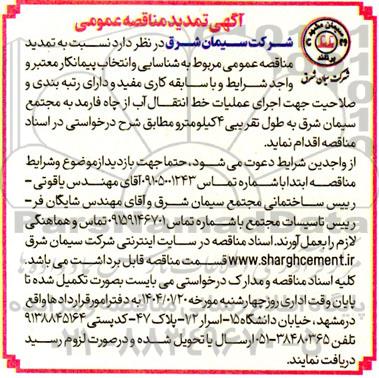 آگهی تمدید مناقصه عمومی
شرکت سیمان شرق در نظر دارد نسبت به تمدید
مناقصه عمومی مربوط به شناسایی و انتخاب پیمانکار معتبر و
واجد شرایط و با سابقه کاری مفید و دارای رتبه بندی و
صلاحیت جهت اجرای عملیات خط انتقال آب از چاه فارمد به مجتمع
سیمان شرق به طول تقریبی ۴ کیلومتر و مطابق شرح درخواستی در اسناد
مناقصه اقدام نماید.
از واجدین شرایط دعوت می شود، حتما جهت بازدید از موضوع و شرایط
مناقصه ابتدا با شماره تماس ۰۹۱۰۵۰۰۱۲۴۳ آقای مهندس یاقوتی -
رییس ساختمانی مجتمع سیمان شرق و آقای مهندس شایگان فر -
رییس تاسیسات مجتمع با شماره تماس ۰۹۱۵۹۱۴۶۷۰۱ تماس و هماهنگی
لازم را بعمل آورند. اسناد مناقصه در سایت اینترنتی شرکت سیمان شرق
www.sharghcement.ir قسمت مناقصه قابل برداشت می باشد.
کلیه اسناد مناقصه و مدارک درخواستی می بایست بصورت تکمیل شده تا
پایان وقت اداری روز چهارشنبه مورخه ۱۴۰۴/۰۷/۲۰ به دفتر امور قراردادها واقع
در مشهد، خیابان دانشگاه ۱۵- اسرار ۷۲- پلاک ۴۷- کدپستی ۹۱۳۸۸۴۵۱۶۴
تلفن ۳۸۴۸۰۳۶۵-۰۵۱ ارسال یا تحویل شده و درصورت لزوم رسید
دریافت نمایند.